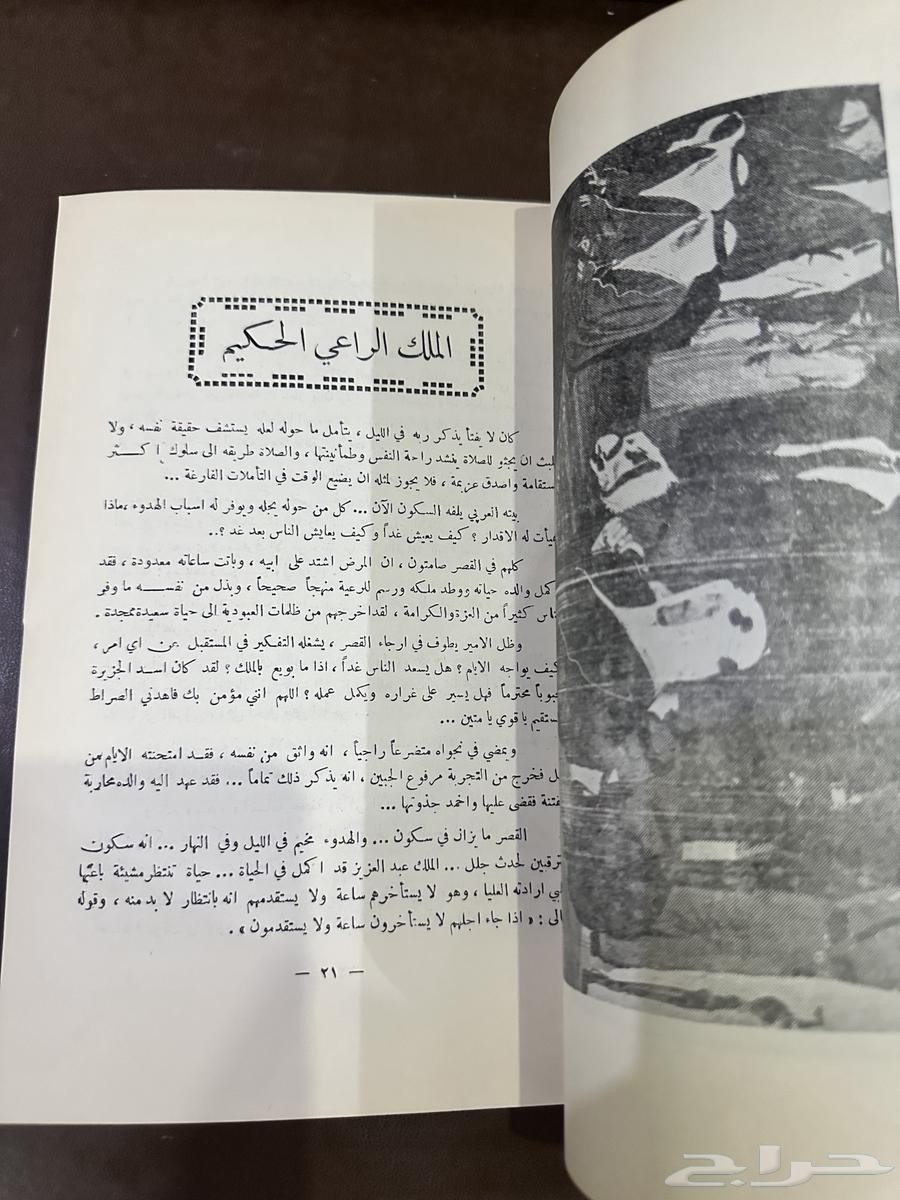 الملك الراعي الحكيم
كان لا يفتأ يذكر ربه في الليل ، يتأمل ما حوله لعله يستشف حقيقة نفسه ، ولا
يلبث ان يجثو للصلاة ينشد راحة النفس وطمأنينتها ، والصلاة طريقه الى سلوك اكثر
ستقامة واصدق عزيمة ، فلا يجوز لمثله ان يضيع الوقت في التأملات الفارغة ...
بيته العربي يلفه السكون الآن ... كل من حوله يجله ويوفر له اسباب الهدوء ، ماذا
هيأت له الاقدار ؟ كيف يعيش غداً وكيف يعايش الناس بعد غد ؟..
كلهم في القصر صامتون ، ان المرض اشتد على ابيه ، وباتت ساعاته معدودة ، فقد
كمل والده حياته ووطد ملكه ورسم للرعية منهجاً صحيحاً ، وبذل من نفسه ما وفر
ناس كثيراً من العزة والكرامة ، لقد اخرجهم من ظلمات العبودية الى حياة سعيدة ممجدة .
وظل الامير يطوف في ارجاء القصر ، يشغله التفكير في المستقبل عن اي امر ،
كيف يواجه الايام ؟ هل يسعد الناس غداً ، اذا ما بويع بالملك ؟ لقد كان اسد الجزيرة
بوباً محترماً فهل يسير على غراره ويكمل عمله ؟ اللهم انني مؤمن بك فاهدني الصراط
ستقيم يا قوي يا متين ...
ويمضي في نجواه متضرعاً راجياً ، انه واثق من نفسه ، فقد امتحنته الايام من
ل فخرج من التجربة مرفوع الجبين ، انه يذكر ذلك تماماً ... فقد عهد اليه والده محاربة
فتنة فقضى عليها واخمد جذوتها ...
القصر ما يزال في سكون ... والهدوء مخيم في الليل وفي النهار ... انه سكون
ترقبين لحدث جلل ... الملك عبد العزيز قد اكمل في الحياة ... حياة تنتظر مشيئة باعثها
بي ارادته العليا ، وهو لا يستأخرهم ساعة ولا يستقدمهم انه بانتظار لا بد منه ، وقوله
الى : « اذا جاء اجلهم لا يستأخرون ساعة ولا يستقدمون » .
— ٢١ —
حراج